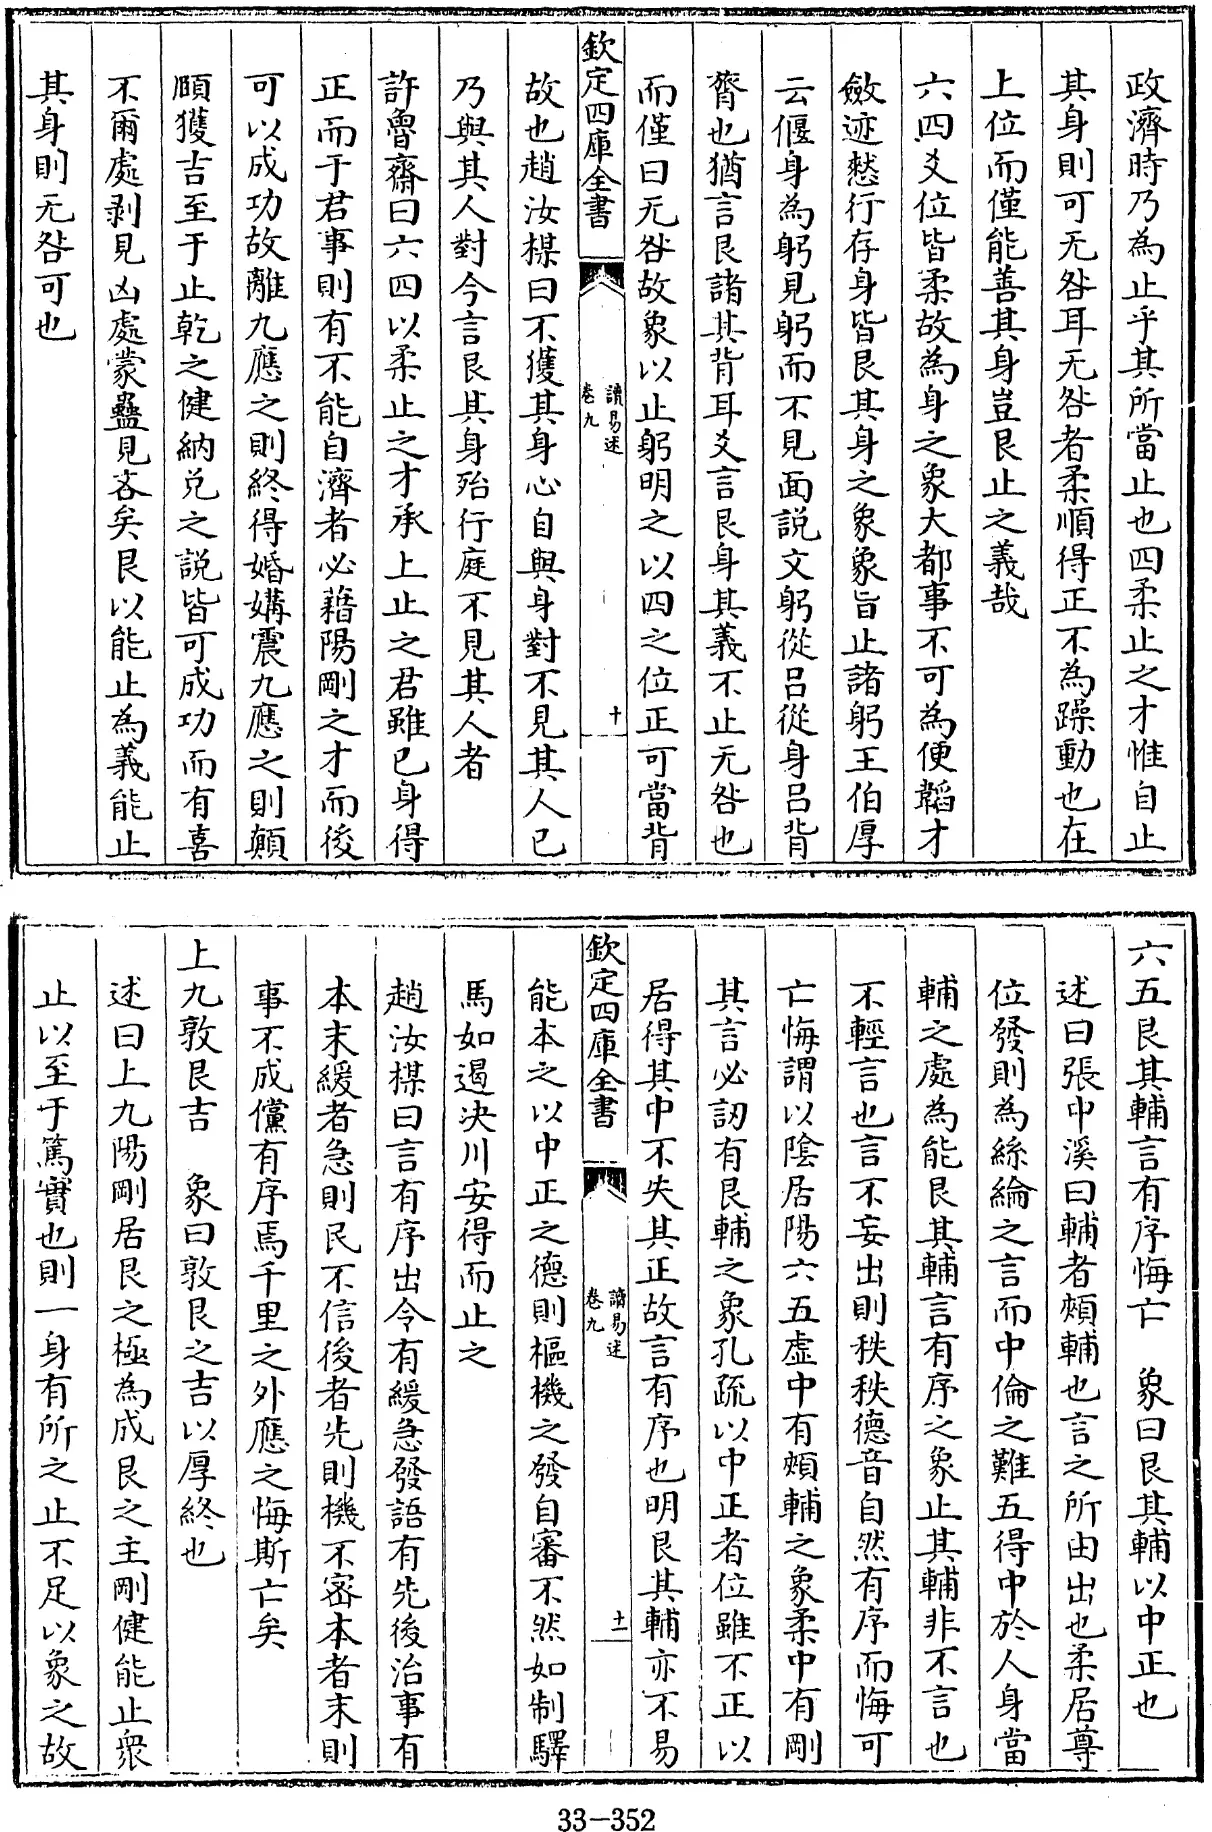 政濟時乃為止乎其所當止也四柔止之才惟自止
其身則可无咎耳无咎者柔順得正不為躁動也在
上位而僅能善其身豈艮止之義哉
六四爻位皆柔故為身之象大都事不可為便韜才
斂迹愁行存身皆艮其身之象象旨止諸躬王伯厚
云偃身為躬見躬而不見面説文躬從呂從身呂背
膂也猶言艮諸其背耳爻言艮身其義不止无咎也
而僅曰无咎故象以止躬明之以四之位正可當背
欽定四庫全書
讀易述
卷九
十
故也趙汝楳曰不獲其身心自與身對不見其人已
乃與其人對今言艮其身殆行庭不見其人者
許魯齋曰六四以柔止之才承上止之君雖已身得
正而于君事則有不能自濟者必藉陽剛之才而後
可以成功故離九應之則終得婚媾震九應之則顛
頤獲吉至于止乾之健納兌之説皆可成功而有喜
不爾處剥見凶處蒙蠱見吝矣艮以能止為義能止
其身則无咎可也
六五艮其輔言有序悔亡 象曰艮其輔以中正也
述曰張中溪曰輔者頰輔也言之所由出也柔居尊
位發則為絲綸之言而中倫之難五得中於人身當
輔之處為能艮其輔言有序之象止其輔非不言也
不輕言也言不妄出則秩秩德音自然有序而悔可
亡悔謂以陰居陽六五虛中有頰輔之象柔中有剛
其言必訒有艮輔之象孔疏以中正者位雖不正以
居得其中不失其正故言有序也明艮其輔亦不易
欽定四庫全書
讀易述
卷九
十一
能本之以中正之德則樞機之發自審不然如制驛
馬如遏決川安得而止之
趙汝楳曰言有序出令有緩急發語有先後治事有
本末緩者急則民不信後者先則機不密本者末則
事不成儻有序焉千里之外應之悔斯亡矣
上九敦艮吉 象曰敦艮之吉以厚終也
述曰上九陽剛居艮之極為成艮之主剛健能止衆
止以至于篤實也則一身有所之止不足以象之故
33-352